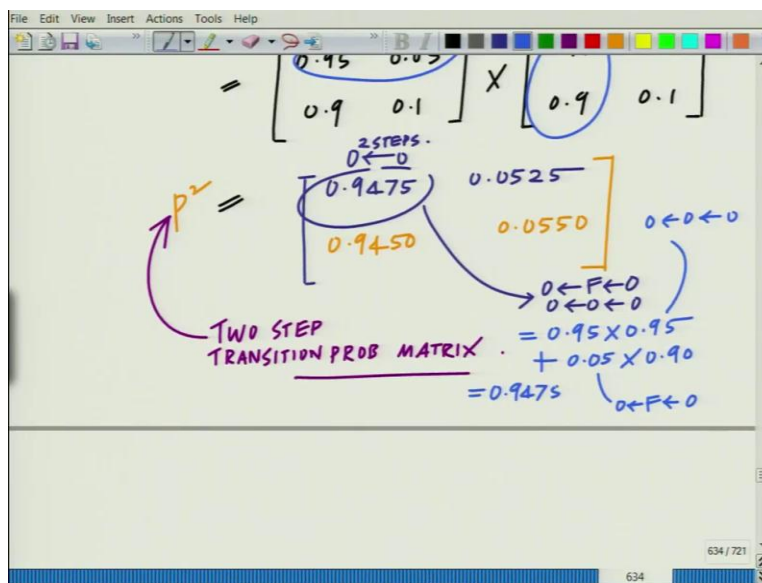 File Edit View Insert Actions Tools Help
B I
0.95 0.05
= ×
0.9 0.1 0.9 0.1
2 STEPS.
O←O
P² = 0.9475 0.0525
0.9450 0.0550 O←O←O
O←F←O
O←O←O
TWO STEP = 0.95×0.95
TRANSITION PROB MATRIX. + 0.05×0.90
= 0.9475 O←F←O
634 / 721
634